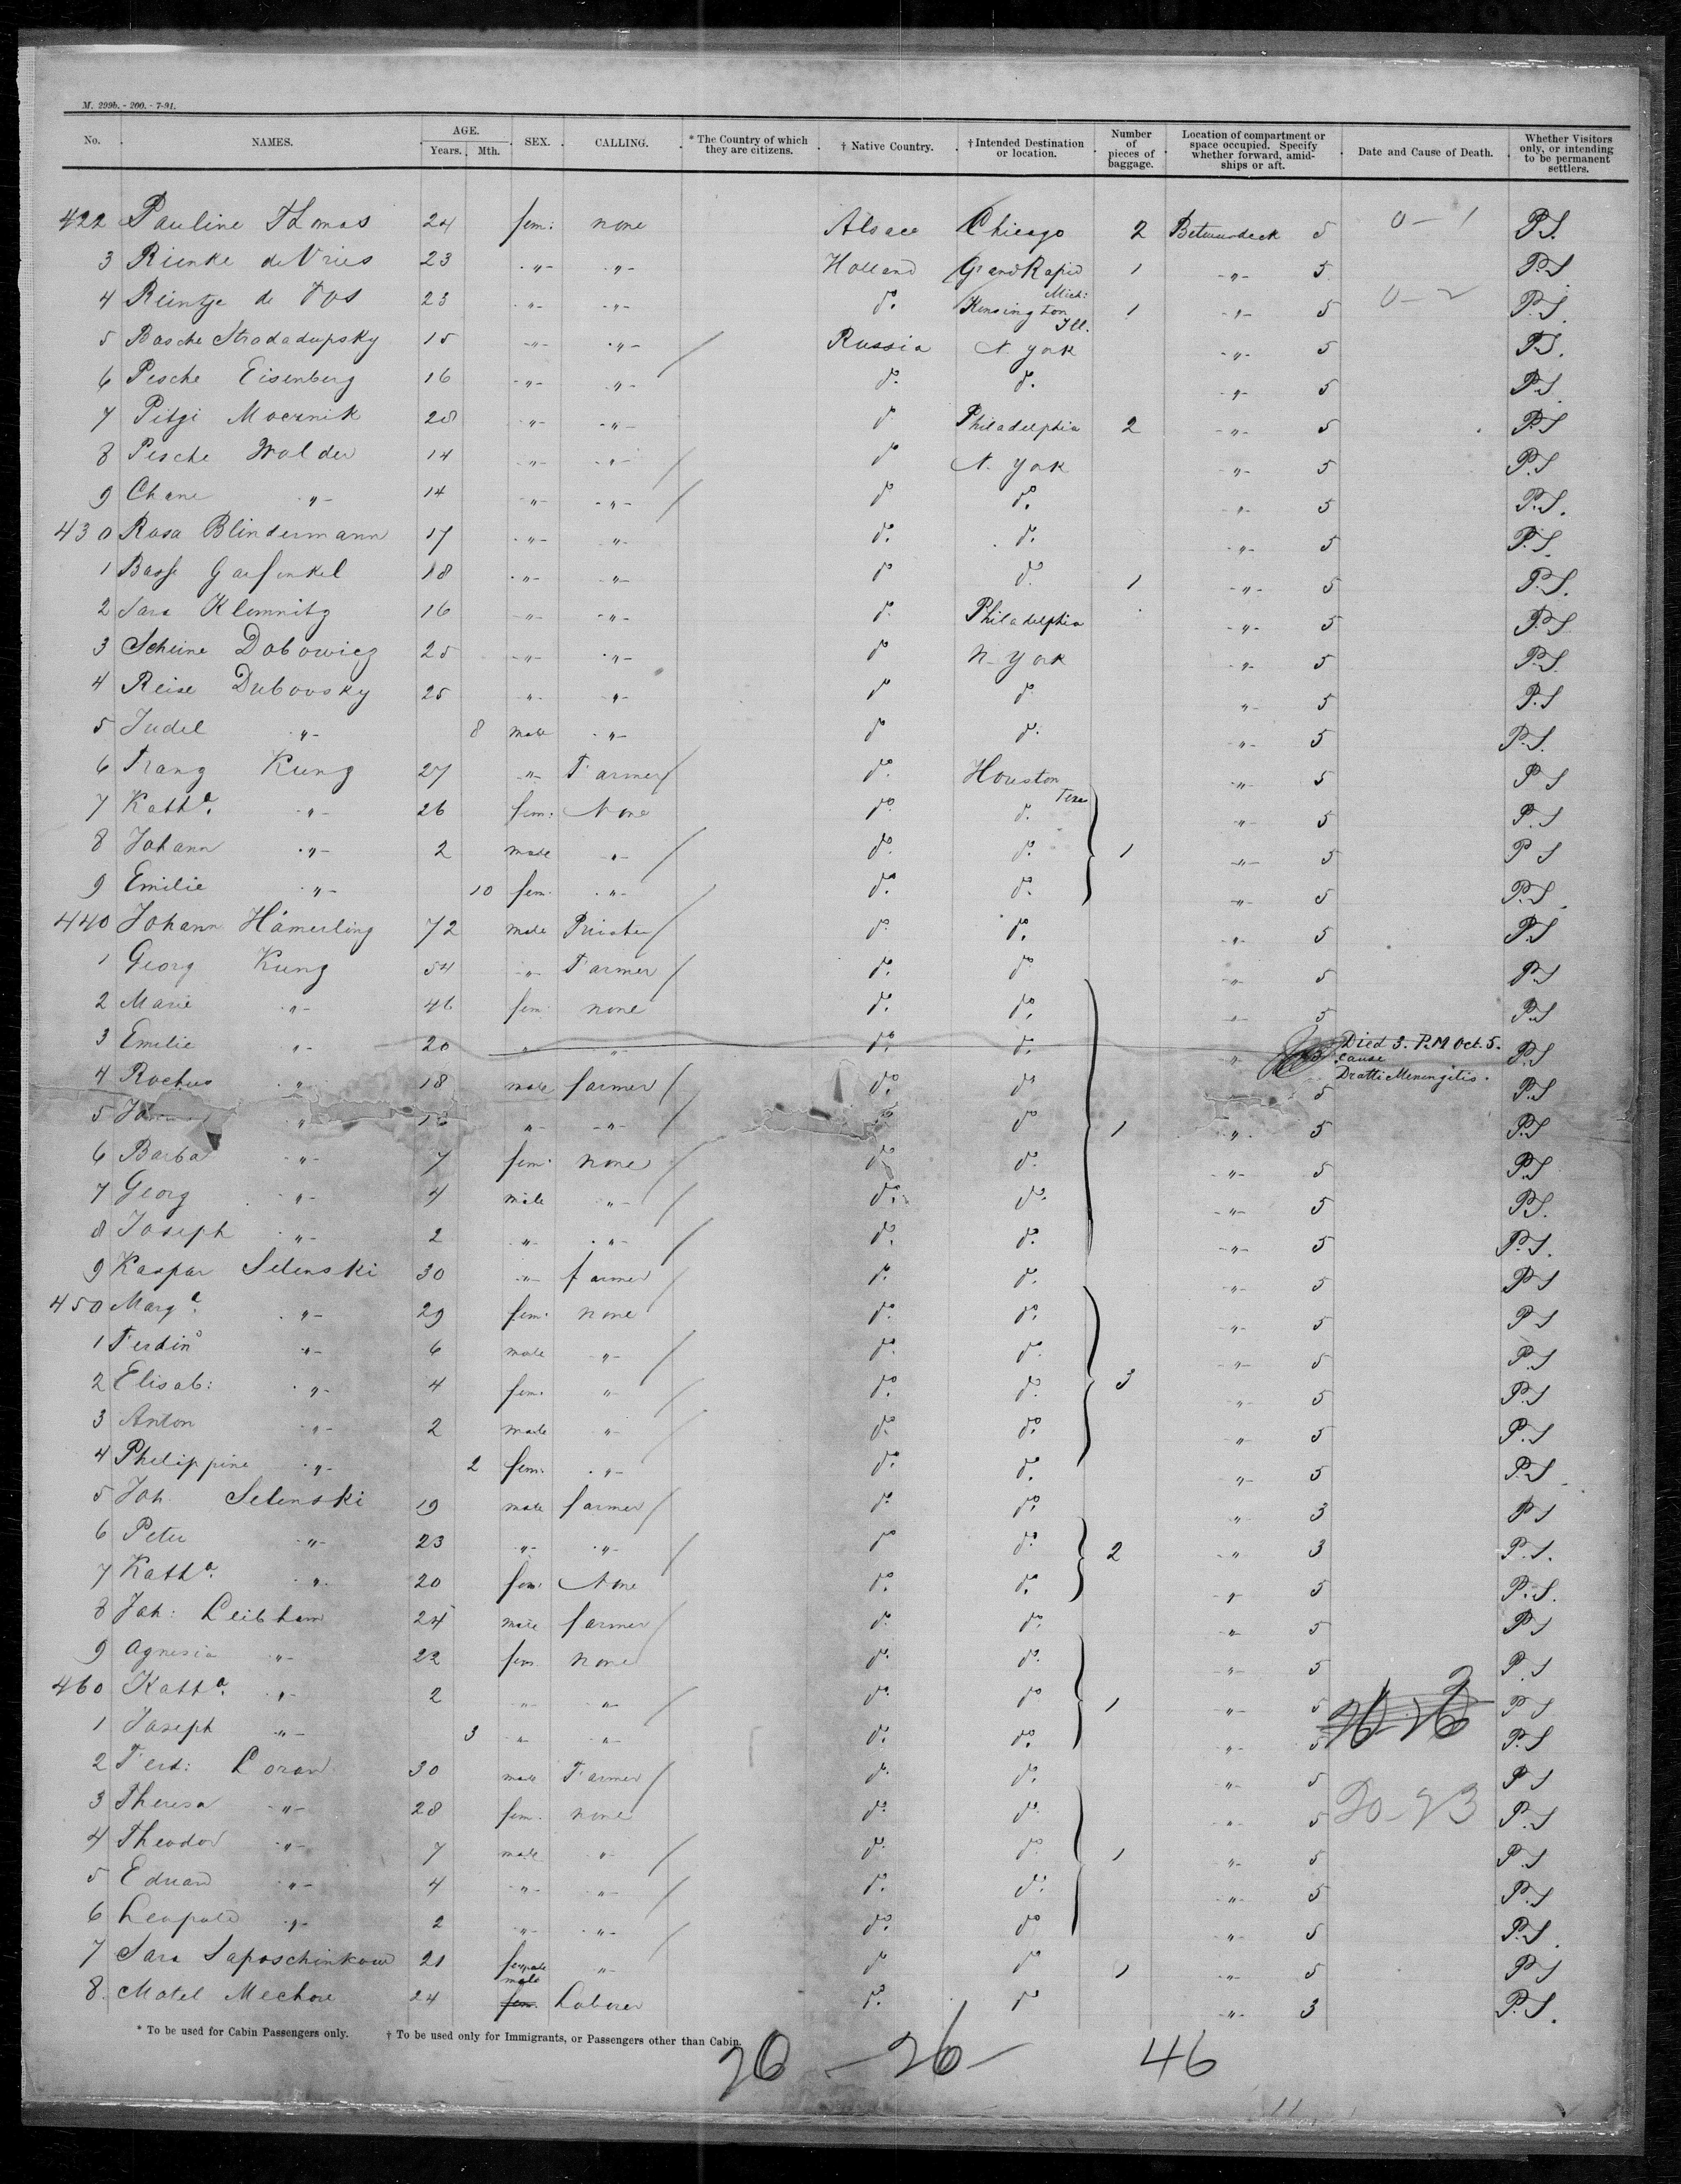 M. 299b. - 200. - 7-91.
No. NAMES. AGE. Years. Mth. SEX. CALLING. * The Country of which they are citizens. † Native Country. † Intended Destination or location. Number of pieces of baggage. Location of compartment or space occupied. Specify whether forward, amidships or aft. Date and Cause of Death. Whether Visitors only, or intending to be permanent settlers.
422 Pauline Thomas 24 fem: none Alsace Chicago 2 Betweendeck 5 0-1 P.S.
3 Rienke de Vries 23 -"- -"- Holland Grand Rapid Mich: 1 -"- 5 P.S.
4 Reintje de Vos 23 -"- -"- do. Kensington Ill. 1 -"- 5 0-2 P.S.
5 Basche Stradadupsky 15 -"- -"- / Russia N. York -"- 5 P.S.
6 Pesche Eisenberg 16 -"- -"- do. do. -"- 5 P.S.
7 Pitzi Moernik 28 -"- -"- do Philadelphia 2 -"- 5 P.S
8 Pesche Walder 14 -"- -"- / do N. York -"- 5 P.S
9 Chane -"- 14 -"- -"- / do do. -"- 5 P.S.
430 Rosa Blindermann 17 -"- -"- do. do. -"- 5 P.S.
1 Basse Garfinkel 18 -"- -"- do do. 1 -"- 5 P.S.
2 Sara Klemnitz 16 -"- -"- do. Philadelphia -"- 5 P.S
3 Scheine Dobowicz 25 -"- -"- do N. York -"- 5 P.S.
4 Reise Dubovsky 25 -"- -"- do do -"- 5 P.S
5 Judel -"- 8 male -"- do do. -"- 5 P.S.
6 Franz Kung 27 -"- Farmer / do. Houston Texas -"- 5 P S
7 Katha. -"- 26 fem: None do. do. -"- 5 P.S
8 Johann -"- 2 male -"- / do. do. 1 -"- 5 P S
9 Emilie -"- 10 fem. -"- / do. do. -"- 5 P.S.
440 Johann Hämerling 72 male / do. do. -"- 5 P.S
1 Georg Kung 54 -"- Farmer / do. do -"- 5 P.S
2 Marie -"- 46 fem. none do. do. -"- 5 P.S
3 Emilie -"- 20 -"- -"- do. do. -"- Died 3. P.M Oct. 5. P.S
cause
Meningitis.
4 Rochus -"- 18 male farmer / do. do -"- 5 P.S
5 -"- -"- -"- / do do 1 -"- 5 P.S
6 Barba -"- 7 fem. none / do do. -"- 5 P.S
7 Georg -"- 4 male -"- / do. do. -"- 5 P.S.
8 Joseph -"- 2 -"- -"- / do. do. -"- 5 P.S.
9 Kaspar Selenski 30 -"- farmer / do. do. -"- 5 P.S
450 Marga. -"- 29 fem. none do. do. -"- 5 P S
1 Ferdind -"- 6 male -"- / do. do. -"- 5 P.S
2 Elisab: -"- 4 fem. -"- / do. do. 3 -"- 5 P.S
3 Anton -"- 2 male -"- / do. do. -"- 5 P.S
4 Philippine -"- 2 fem. -"- do. do. -"- 5 P.S.
5 Joh. Selenski 19 male farmer / do. do. -"- 3 P S
6 Peter -"- 23 -"- -"- / do do. 2 -"- 3 P.S.
7 Katha. -"- 20 fem. None do. do. -"- 5 P.S.
8 Joh: Leibham 24 male farmer / do. do. -"- 5 P S
9 Agnesia -"- 22 fem none do. do. -"- 5 P.S
460 Katha. -"- 2 -"- -"- / do. do 1 -"- 5 P S
1 Joseph -"- 3 -"- -"- do. do. -"- 5 P.S
2 Ferd: Loran 30 male Farmer / do. do. -"- 5 P S
3 Theresa -"- 28 fem. none do. do. -"- 5 20-23 P.S
4 Theodor -"- 7 male -"- / do. do. 1 -"- 5 P.S
5 Eduard -"- 4 -"- -"- / do. do. -"- 5 P.S
6 Leopold -"- 2 -"- -"- / do. do -"- 5 P.S.
7 Sara Saposchinkow 21 female -"- do do 1 -"- 5 P S
8. Motel Mechore 24 male fem. Laborer do. do -"- 3 P.S.
* To be used for Cabin Passengers only. † To be used only for Immigrants, or Passengers other than Cabin.
20 - 26 - 46